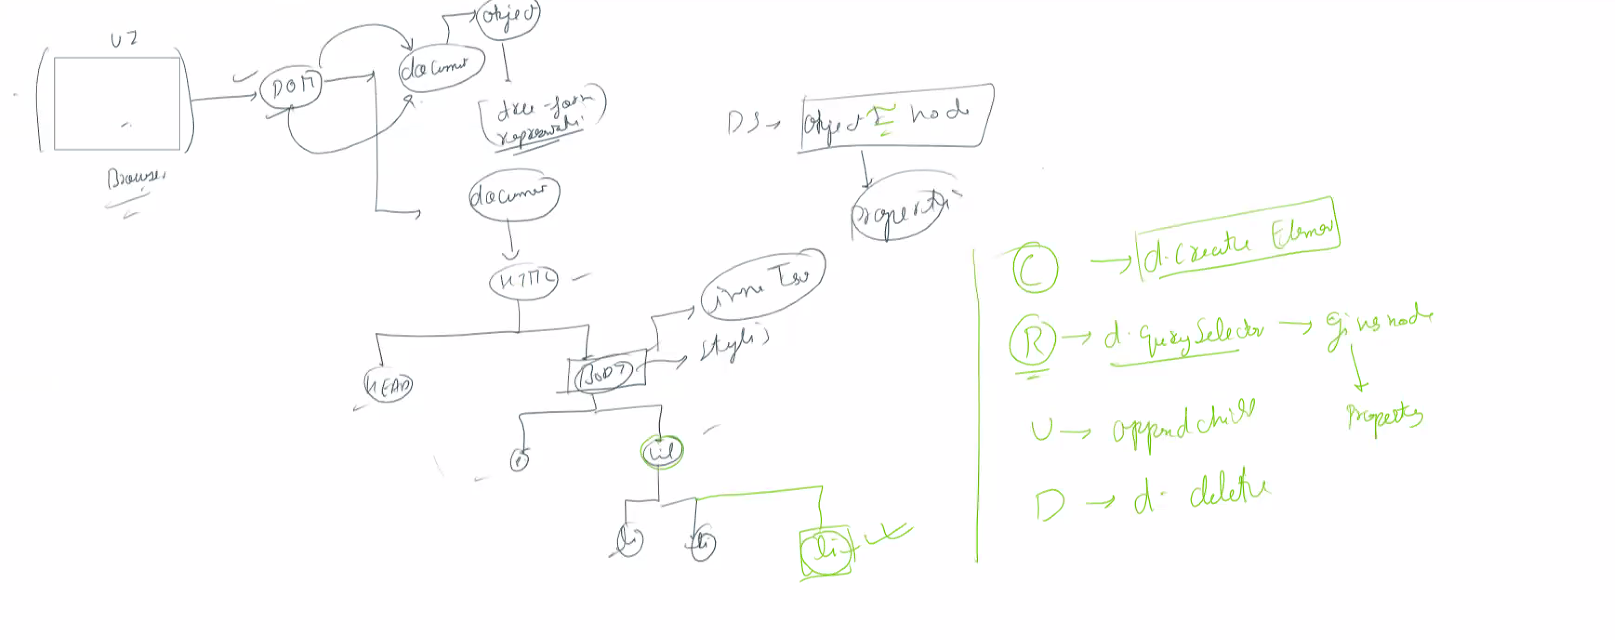 UI
Browser
DOM
document
object
[tree-form
representati]
document
HTML
HEAD
BODY
inner Text
styles
ul
li
li
li
DS → object I node
properti
C → d.create Element
R → d.querySelector → gives node
Property
U → appendchild
D → d. delete